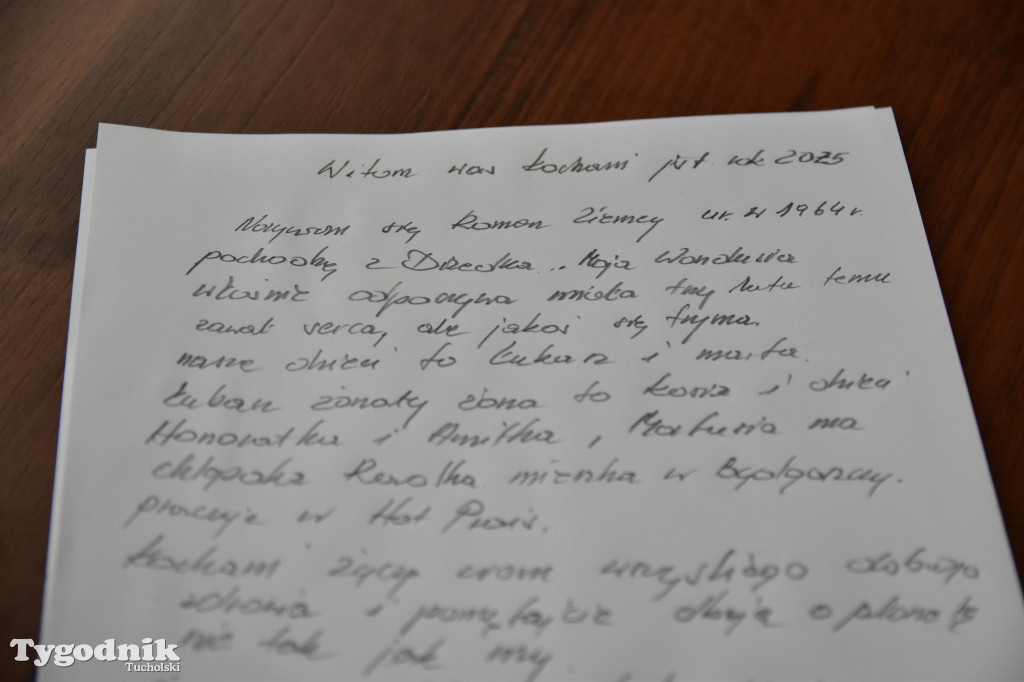 Witam was kochani jest rok 2025
Nazywam się Roman Ziemcy ur. w 1964 r.
pochodzę z
właśnie odpoczywa miała trzy lata temu
zawał serca, ale jakoś się trzyma.
nasze dzieci to Łukasz i Marta.
żonaty żona to Kasia i dzieci
Honoratka i Anitka, Martusia ma
chłopaka mieszka w Bydgoszczy.
pracuje w Hot
Kochani życzę wam wszystkiego dobrego
zdrowia i pamiętajcie dbają o planetę
nie tak jak my
Tygodnik
Tucholski